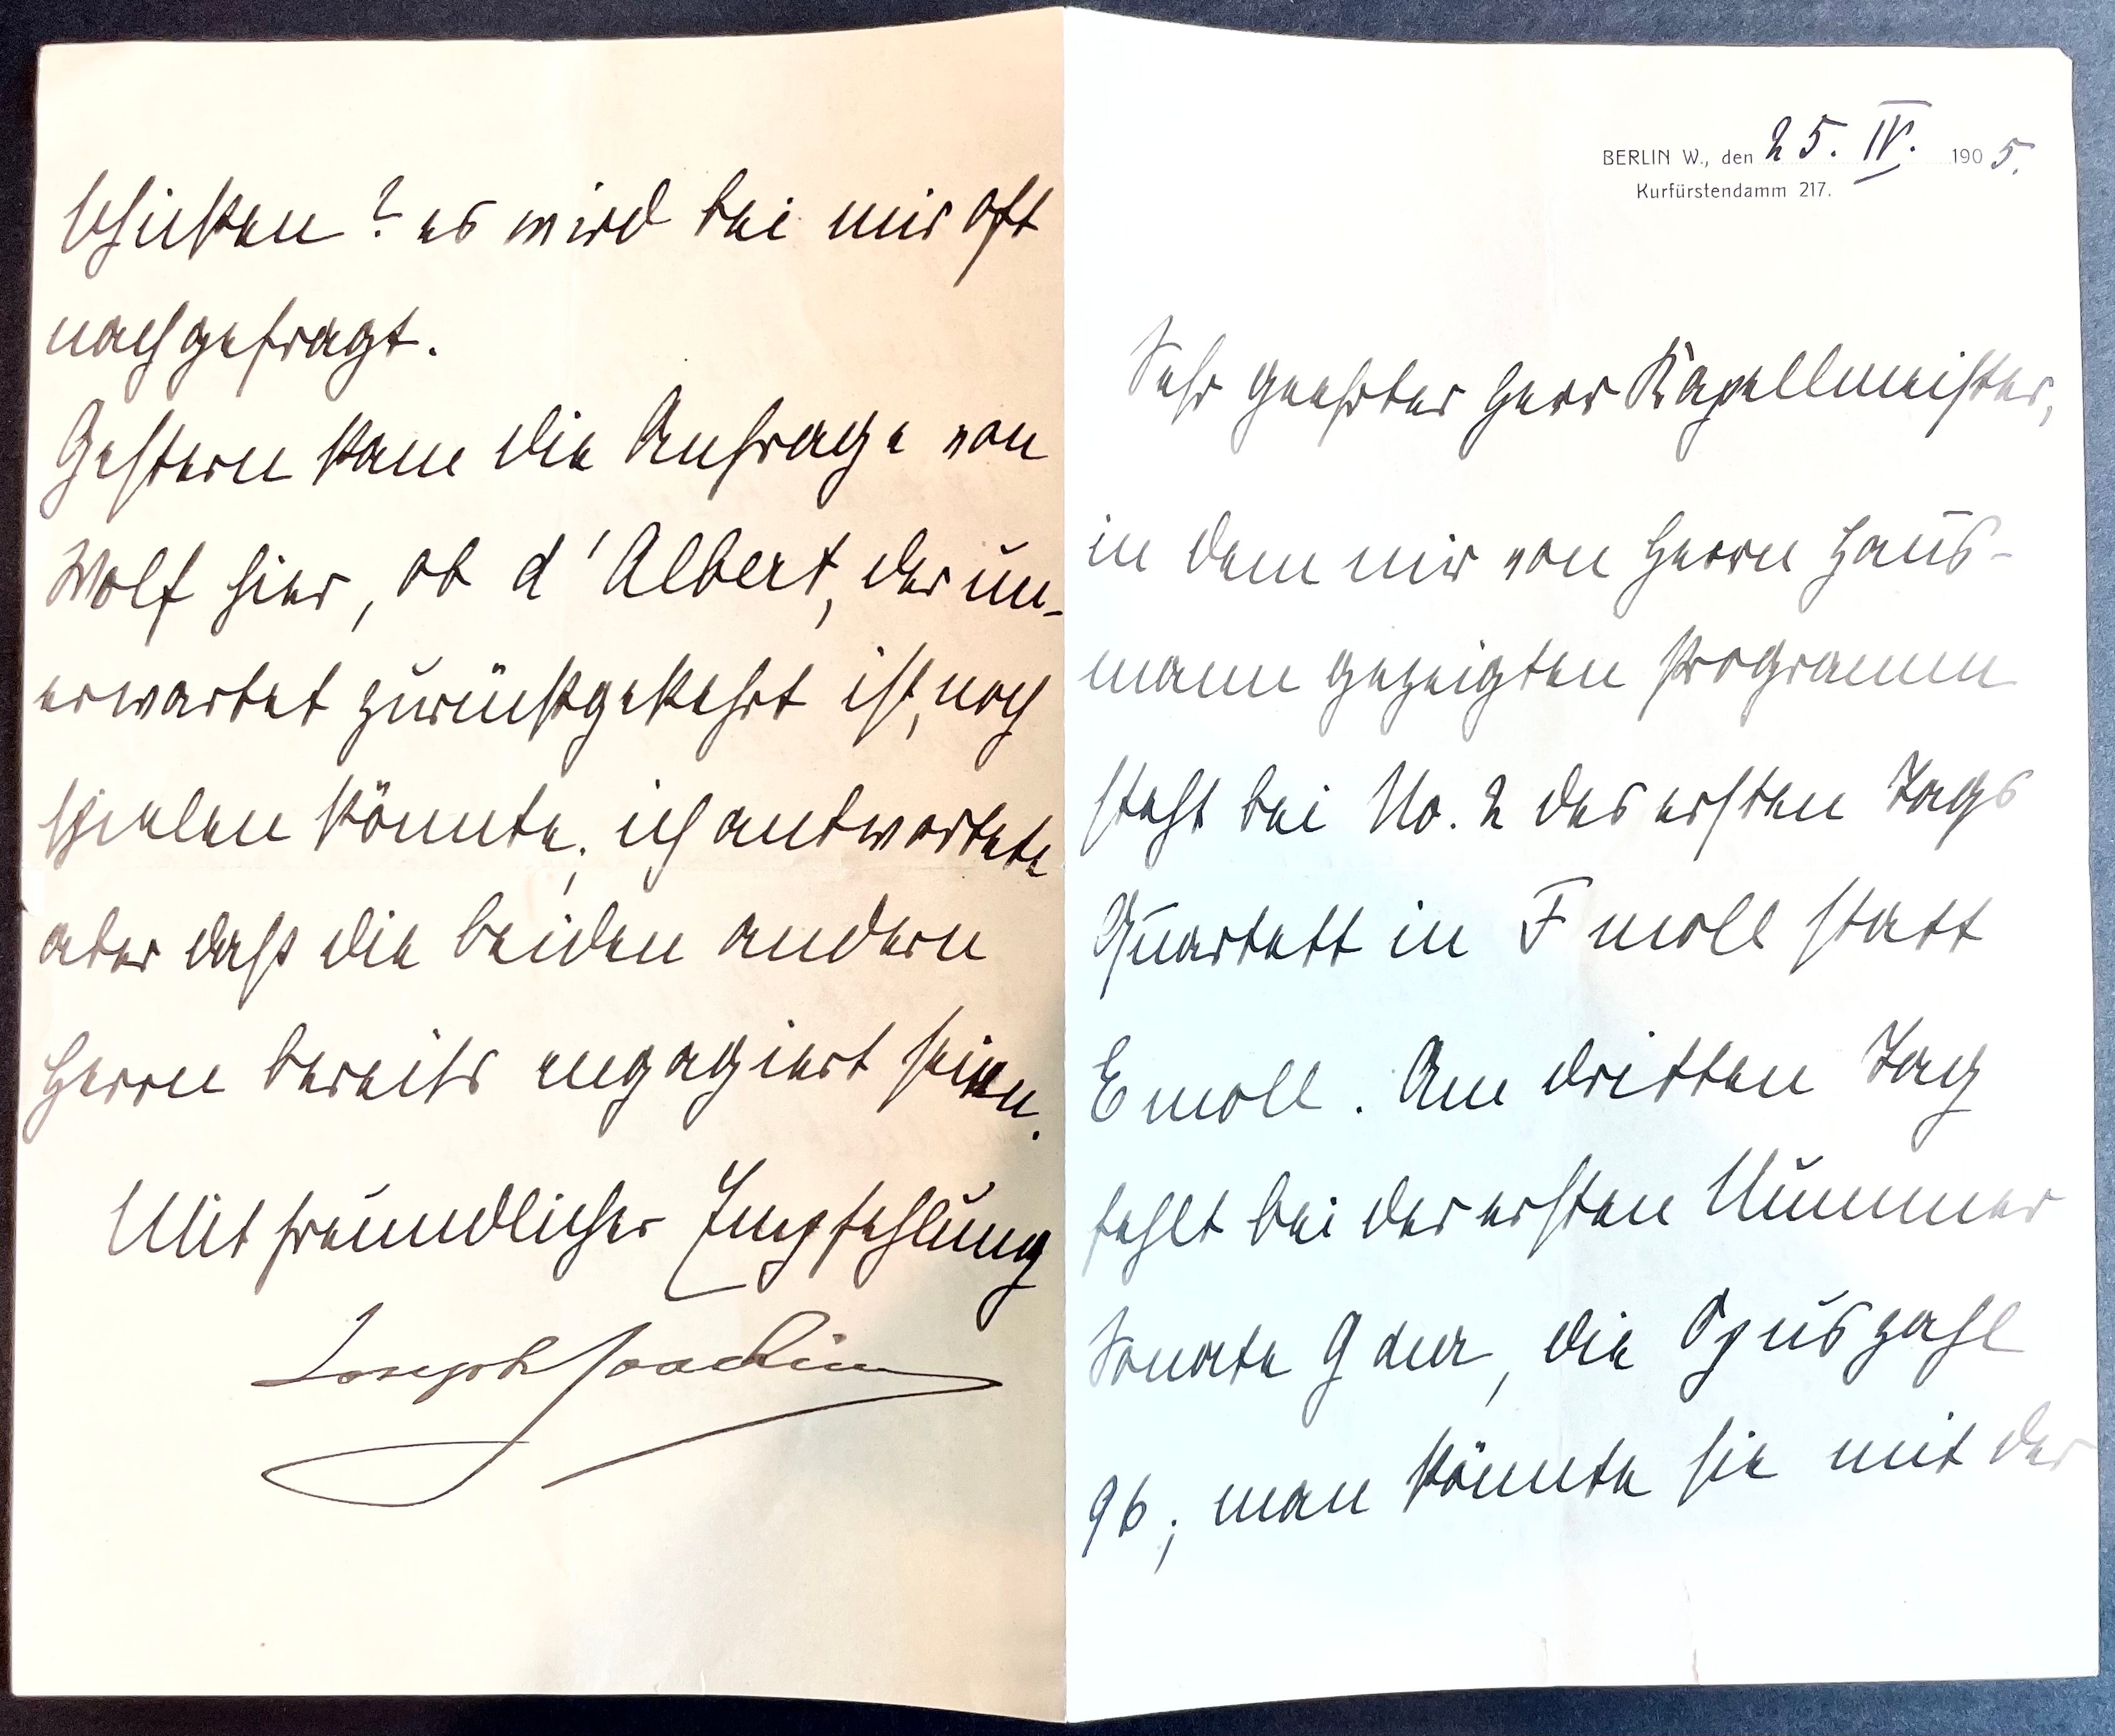 BERLIN W., den 25. IV. 1905.
Kurfürstendamm 217.
Sehr geehrter Herr Kapellmeister,
in dem mir von Herrn Haus-
mann gezeigten Programm
steht bei No. 2 des ersten Tags
Quartett in F moll statt
E moll. Am dritten Tag
fehlt bei der ersten Nummer
Sonate G dur, die Opuszahl
96; man könnte sie mit der
schicken? es wird bei mir oft
nachgefragt.
Gestern kam die Anfrage von
Wolf hier, ob d'Albert, der un-
erwartet zurückgekehrt ist, noch
spielen könnte; ich antwortete
aber daß die beiden andern
Herrn bereits engagiert seien.
Mit freundlicher Empfehlung
Joseph Joachim